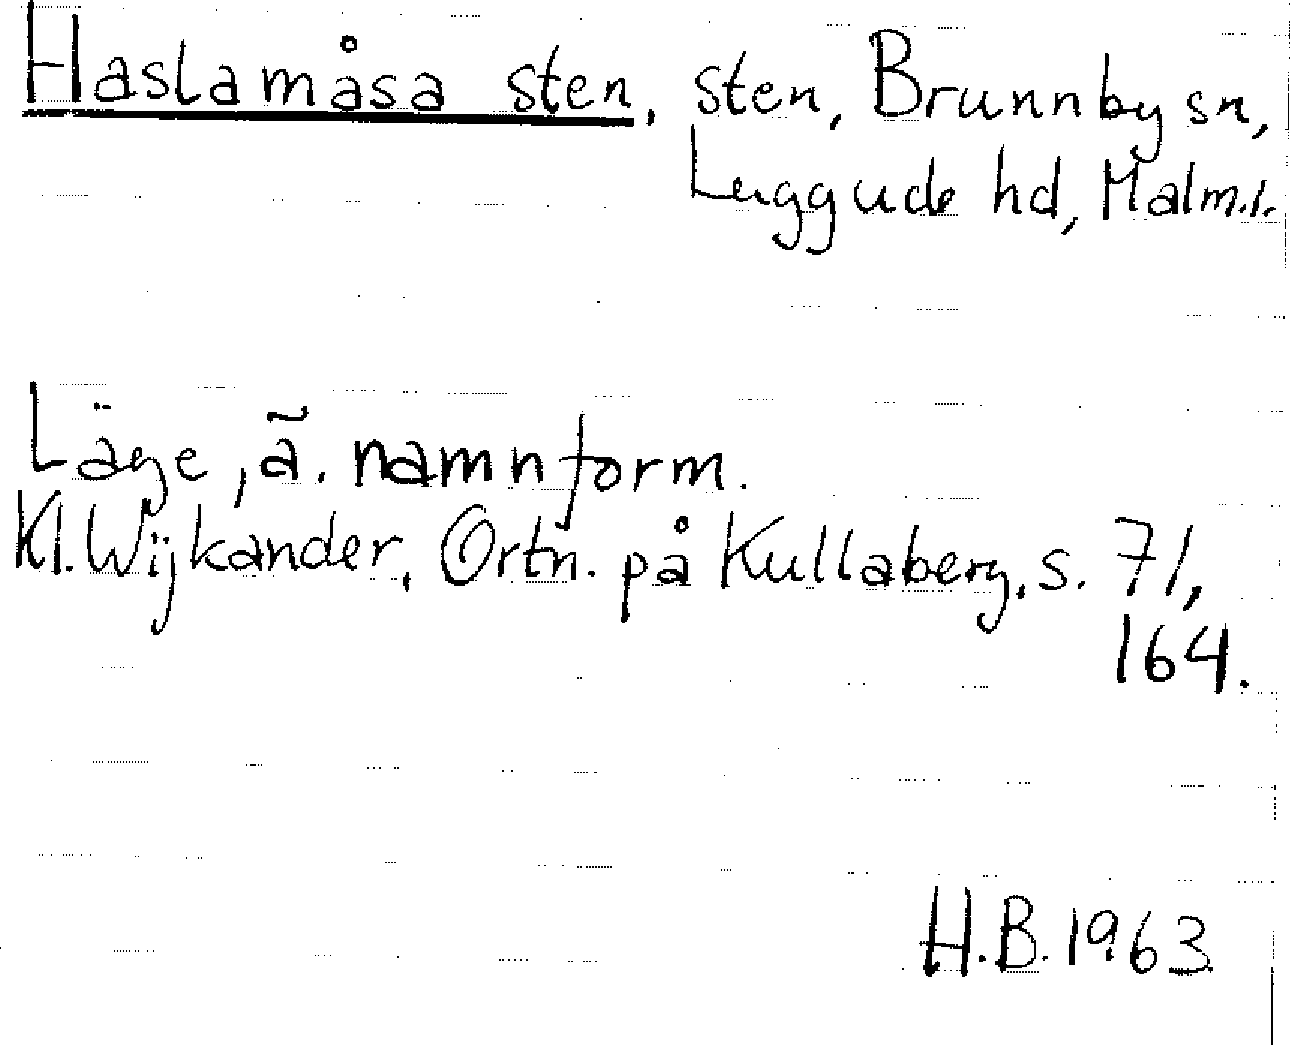 Haslamåsa sten, sten, Brunnby sn,
Luggude hd, Malm.l.
Läge, ä. namnform.
Kl. Wijkander, Ortn. på Kullaberg, s. 71,
164.
H.B. 1963